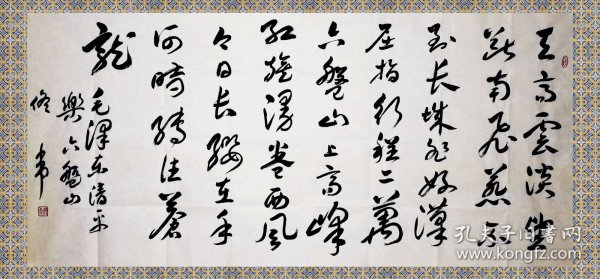 天高雲淡望
斷南飛雁不
到長城非好漢
屈指行程二萬
六盤山上高峰
紅旗漫卷西風
今日長纓在手
何時縛住蒼
龍
毛澤東清平
樂六盤山
孔夫子旧书网